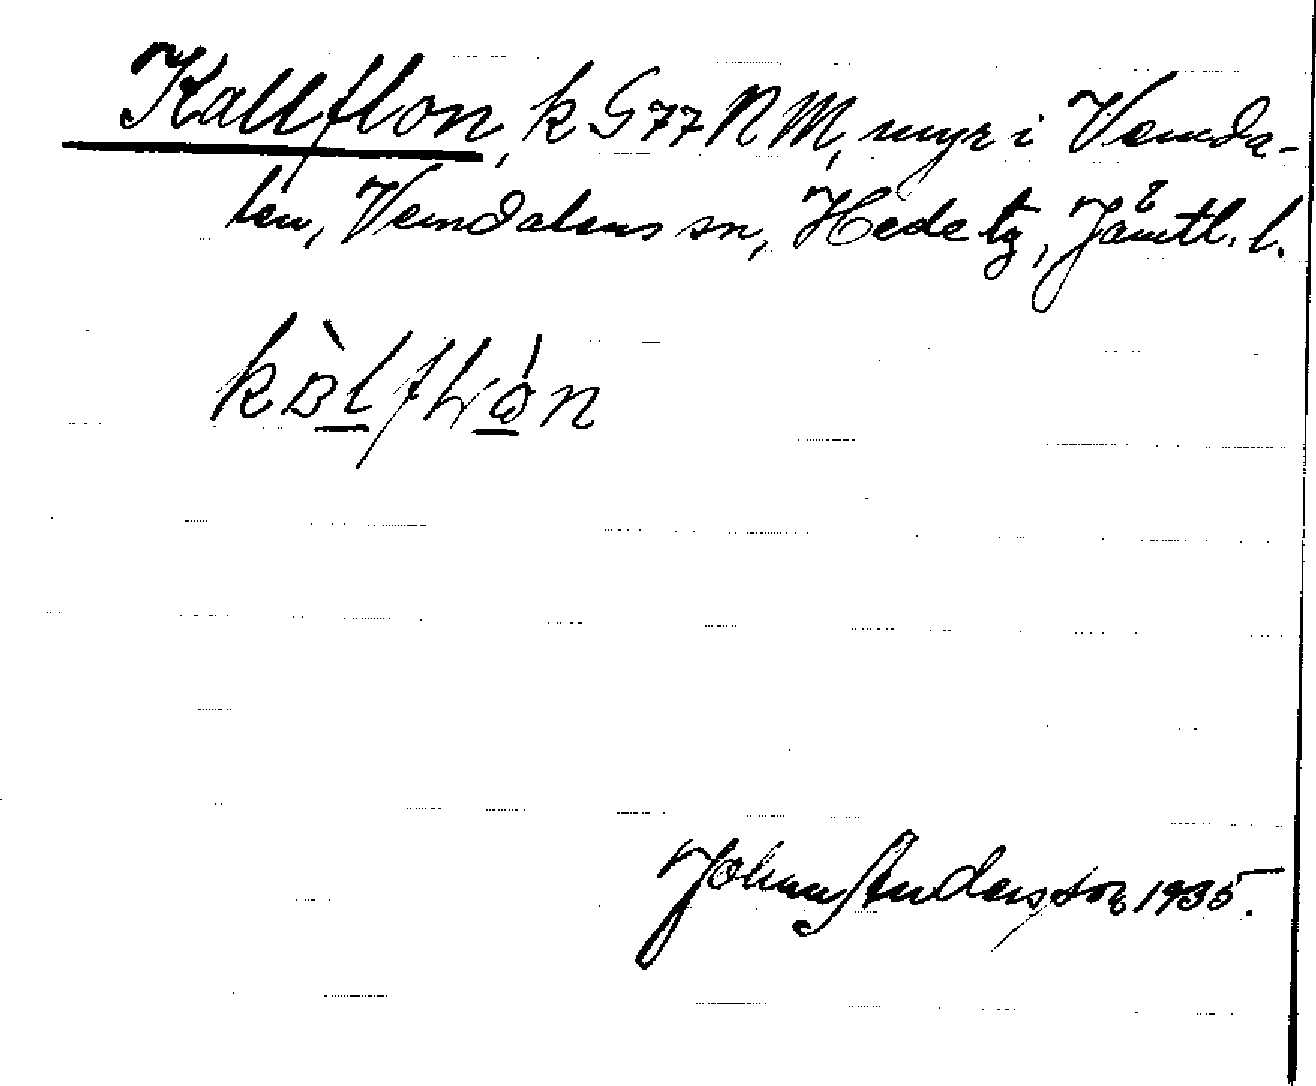 Kallflon, k G77 N M, myr i Vemda-
len, Vemdalens sn, Hede tg, Jämtl. l.
Johan Andersson 1935.